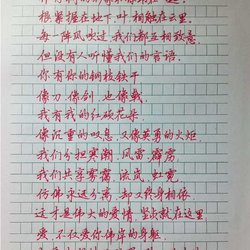 根紧握在地下,叶相触在云里。
每一阵风吹过,我们都互相致意,
但没有人听懂我们的言语。
你有你的铜枝铁干
像刀、像剑,也像戟,
我有我的红硕花朵
像沉重的叹息,又像英勇的火炬,
我们分担寒潮、风雷、霹雳,
我们共享雾霭、流岚、虹霓,
仿佛永远分离,却又终身相依
这才是伟大的爱情,坚贞就在这里
爱,不仅爱你伟岸的身躯